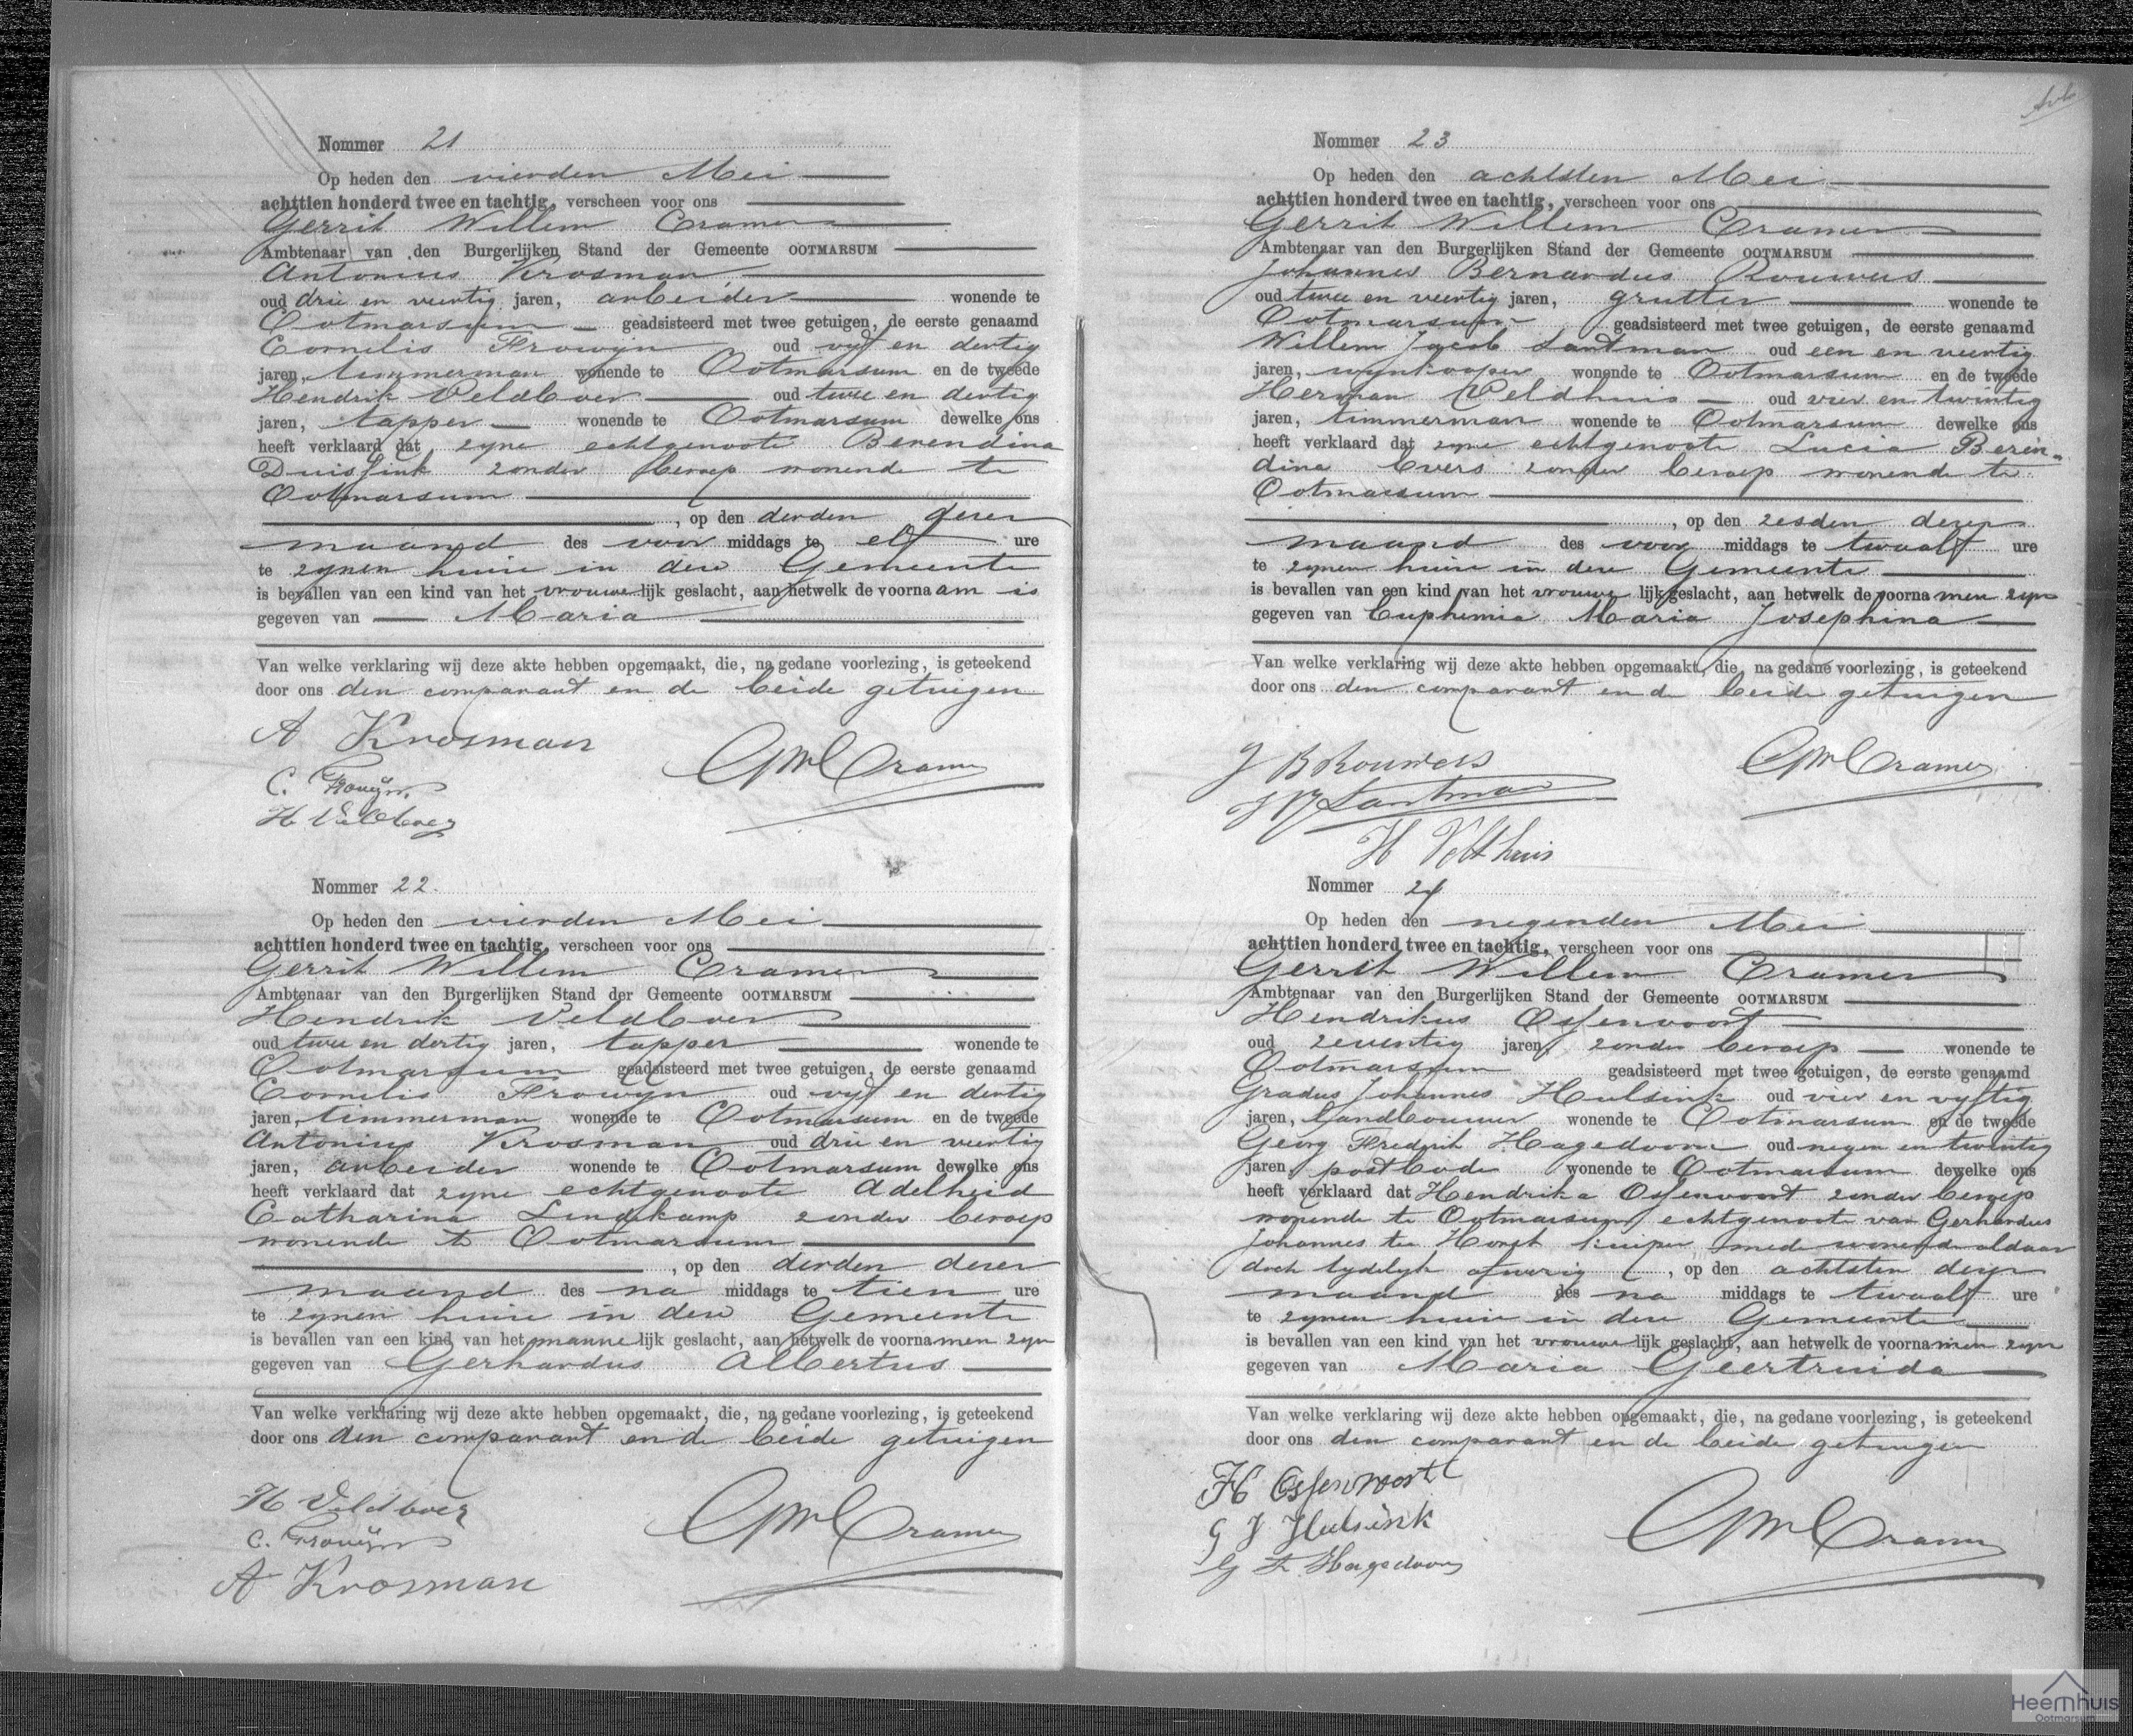 Nommer 21
Op heden den vierden Mei
achttien honderd twee en tachtig, verscheen voor ons
Gerrit Willem Cramer
Ambtenaar van den Burgerlijken Stand der Gemeente OOTMARSUM
Antonius Krosman
oud drie en veertig jaren, arbeider wonende te
Ootmarsum geadsisteerd met twee getuigen, de eerste genaamd
Cornelis Frowijn oud vijf en dertig
jaren, timmerman wonende te Ootmarsum en de tweede
Hendrik Veldboer oud twee en dertig
jaren, tapper wonende te Ootmarsum dewelke ons
heeft verklaard dat zijne echtgenoote Berendina
zonder beroep wonende te
Ootmarsum
, op den derden dezer
maand des voor middags te elf ure
te zijnen huize in deze Gemeente
is bevallen van een kind van het vrouwelijk geslacht, aan hetwelk de voornaam is
gegeven van Maria
Van welke verklaring wij deze akte hebben opgemaakt, die, na gedane voorlezing, is geteekend
door ons den comparant en de beide getuigen
A Krosman
GW Cramer
C. Frowijn
H Veldboer
Nommer 22.
Op heden den vierden Mei
achttien honderd twee en tachtig, verscheen voor ons
Gerrit Willem Cramer
Ambtenaar van den Burgerlijken Stand der Gemeente OOTMARSUM
Hendrik Veldboer
oud twee en dertig jaren, tapper wonende te
Ootmarsum geadsisteerd met twee getuigen, de eerste genaamd
Cornelis Frowijn oud vijf en dertig
jaren, timmerman wonende te Ootmarsum en de tweede
Antonius Krosman oud drie en veertig
jaren, arbeider wonende te Ootmarsum dewelke ons
heeft verklaard dat zijne echtgenoote Adelheid
Catharina Lindekamp zonder beroep
wonende te Ootmarsum
, op den derden dezer
maand des na middags te tien ure
te zijnen huize in deze Gemeente
is bevallen van een kind van het mannelijk geslacht, aan hetwelk de voornamen zijn
gegeven van Gerhardus Albertus
Van welke verklaring wij deze akte hebben opgemaakt, die, na gedane voorlezing, is geteekend
door ons den comparant en de beide getuigen
H Veldboer
GW Cramer
C. Frowijn
A Krosman
Nommer 23
Op heden den achtsten Mei
achttien honderd twee en tachtig, verscheen voor ons
Gerrit Willem Cramer
Ambtenaar van den Burgerlijken Stand der Gemeente OOTMARSUM
Johannes Bernardus Rouwers
oud twee en veertig jaren, grutter wonende te
Ootmarsum geadsisteerd met twee getuigen, de eerste genaamd
Willem Jacob Santman oud een en veertig
jaren, wijnkooper wonende te Ootmarsum en de tweede
Herman Veldhuis oud vier en twintig
jaren, timmerman wonende te Ootmarsum dewelke ons
heeft verklaard dat zijne echtgenoote Lucia Beren„
dina Evers zonder beroep wonende te
Ootmarsum
, op den zesden dezer
maand des voor middags te twaalf ure
te zijnen huize in deze Gemeente
is bevallen van een kind van het vrouwelijk geslacht, aan hetwelk de voornamen zijn
gegeven van Euphemia Maria Josephina
Van welke verklaring wij deze akte hebben opgemaakt, die, na gedane voorlezing, is geteekend
door ons den comparant en de beide getuigen
J B Rouwers
GW Cramer
Santman
H Velthuis
Nommer 24
Op heden den negenden Mei
achttien honderd twee en tachtig, verscheen voor ons
Gerrit Willem Cramer
Ambtenaar van den Burgerlijken Stand der Gemeente OOTMARSUM
Hendrikus Ossenvoort
oud zeventig jaren, zonder beroep wonende te
Ootmarsum geadsisteerd met twee getuigen, de eerste genaamd
Gradus Johannes Hulsink oud vier en vijftig
jaren, landbouwer wonende te Ootmarsum en de tweede
Georg Fredrik Hagedoorn oud negen en twintig
jaren postbode wonende te Ootmarsum dewelke ons
heeft verklaard dat Hendrika Ossenvoort zonder beroep
wonende te Ootmarsum echtgenoote van Gerhardus
Johannes ter Horst kuiper mede wonende aldaar
doch tijdelijk afwezig, op den achtsten dezer
maand des na middags te twaalf ure
te zijnen huize in deze Gemeente
is bevallen van een kind van het vrouwelijk geslacht, aan hetwelk de voornamen zijn
gegeven van Maria Geertruida
Van welke verklaring wij deze akte hebben opgemaakt, die, na gedane voorlezing, is geteekend
door ons den comparant en de beide getuigen
H Ossenvoort
G J Hulsink
GW Cramer
G F Hagedoorn
Heemhuis
Ootmarsum